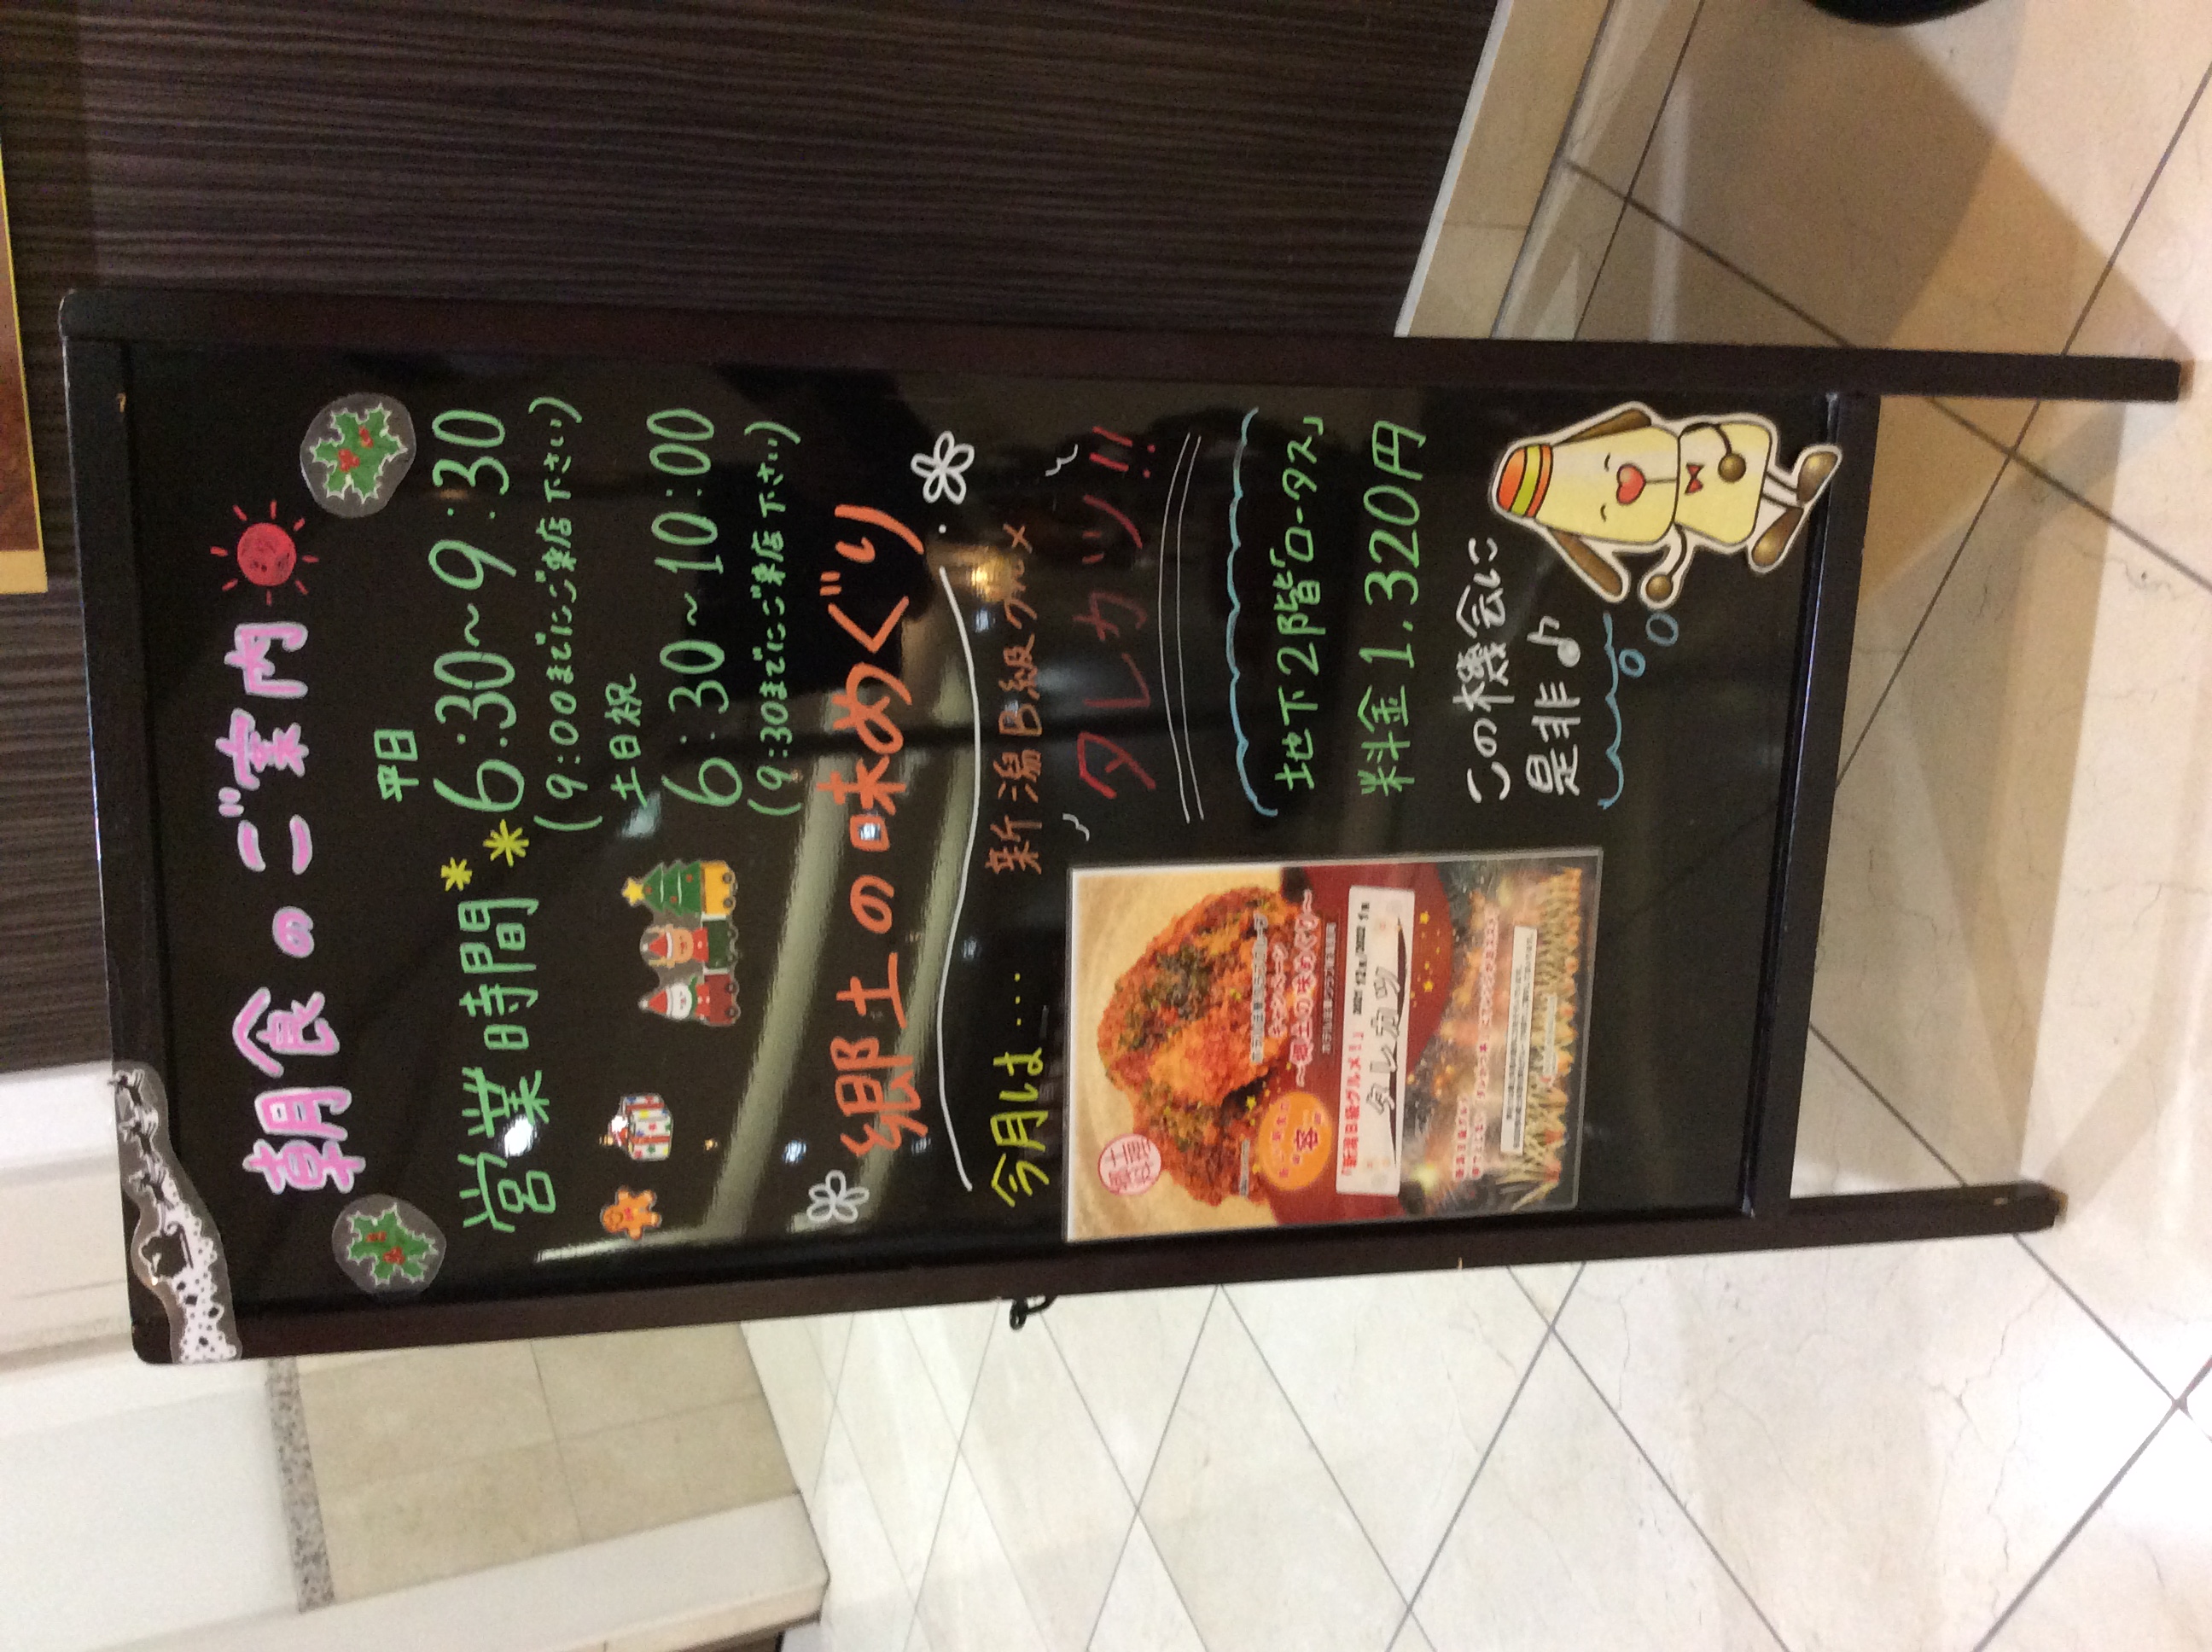 朝食のご案内
営業時間
平日
6:30~9:30
(9:00までにご来店下さい)
土日祝
6:30~10:00
(9:30までにご来店下さい)
郷土の味めぐり
今月は....
新潟B級グルメ
タレカツ!!
地下2階「ロータス」
料金1,320円
この機会に
是非♪
郷土料理
キャンペーン
~郷土の味めぐり~
「新潟B級グルメ!」
2021 12月/2022 1月
タレカツ